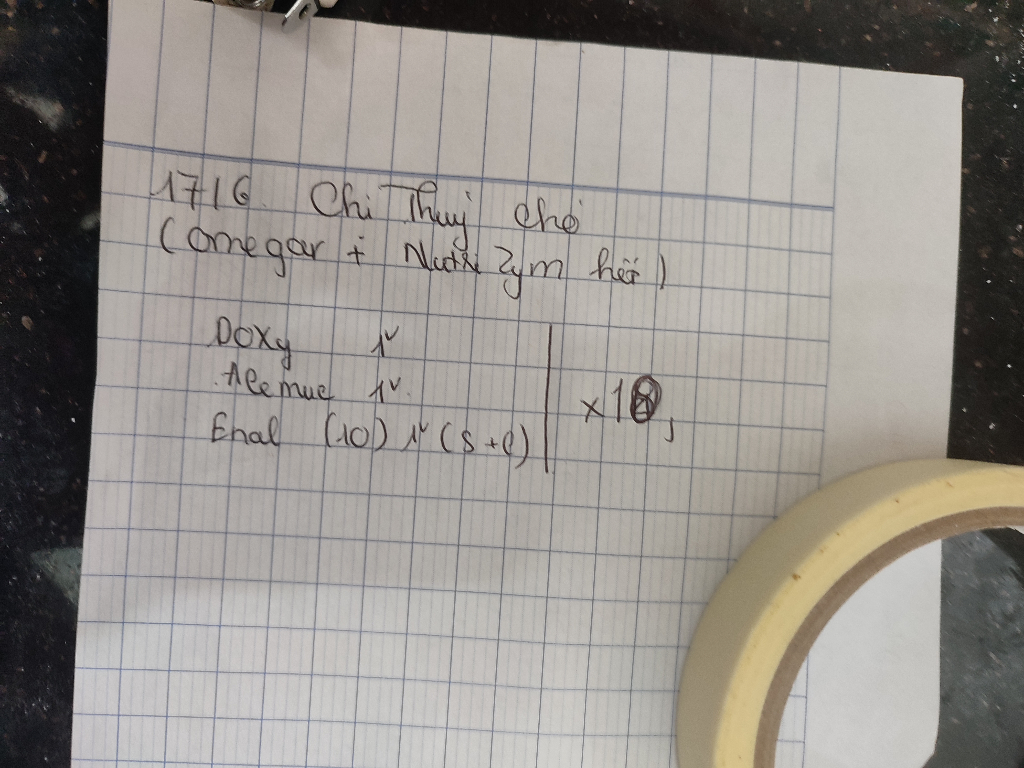 17/6. Chị Thuý chó
(Omegar + Nutri Zym hết)
Doxy 1v
Acemuc 1v.
Enal (10) 1v (S+C)
x 10